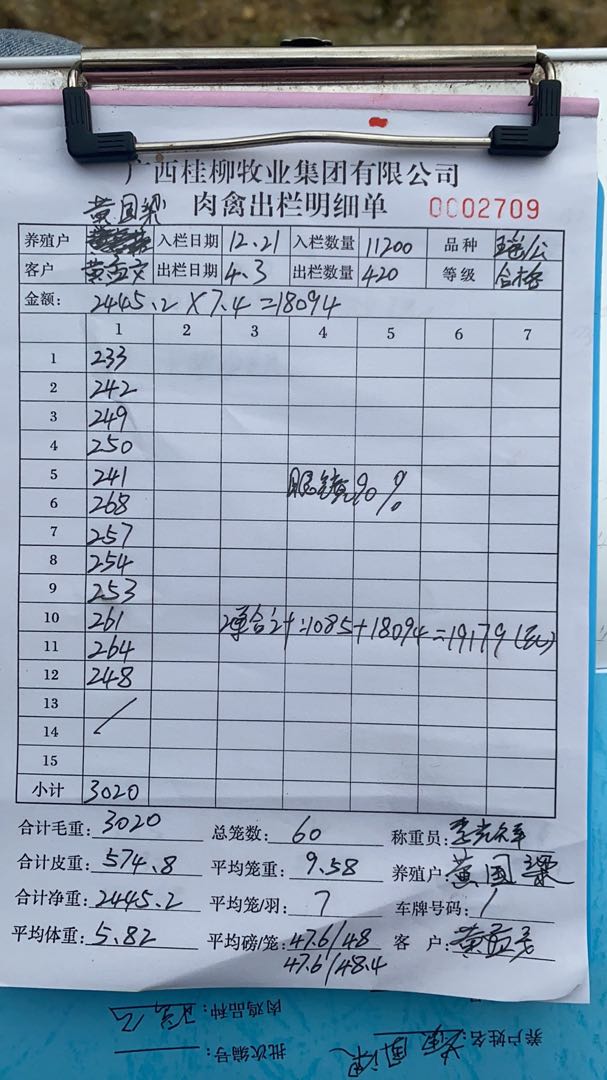 广西桂柳牧业集团有限公司
黄国梁 肉禽出栏明细单 0002709
养殖户 入栏日期 12.21 入栏数量 11200 品种 瑶/公
客户 黄孟交 出栏日期 4.3 出栏数量 420 等级 合格
金额: 2445.2×7.4=18094
1 2 3 4 5 6 7
1 233
2 242
3 249
4 250
5 241
90%
6 268
7 257
8 254
9 253
10 261
2单合计:1085+18094=19179(元)
11 264
12 248
13
14
15
小计 3020
合计毛重: 3020 总笼数: 60 称重员:
合计皮重: 574.8 平均笼重: 9.58 养殖户: 黄国
合计净重: 2445.2 平均笼/羽: 7 车牌号码: /
平均体重: 5.82 平均磅/笼: 47.6/48 客户: 黄孟
47.6/48.4
肉鸡品种:
养户姓名:
批次编号: